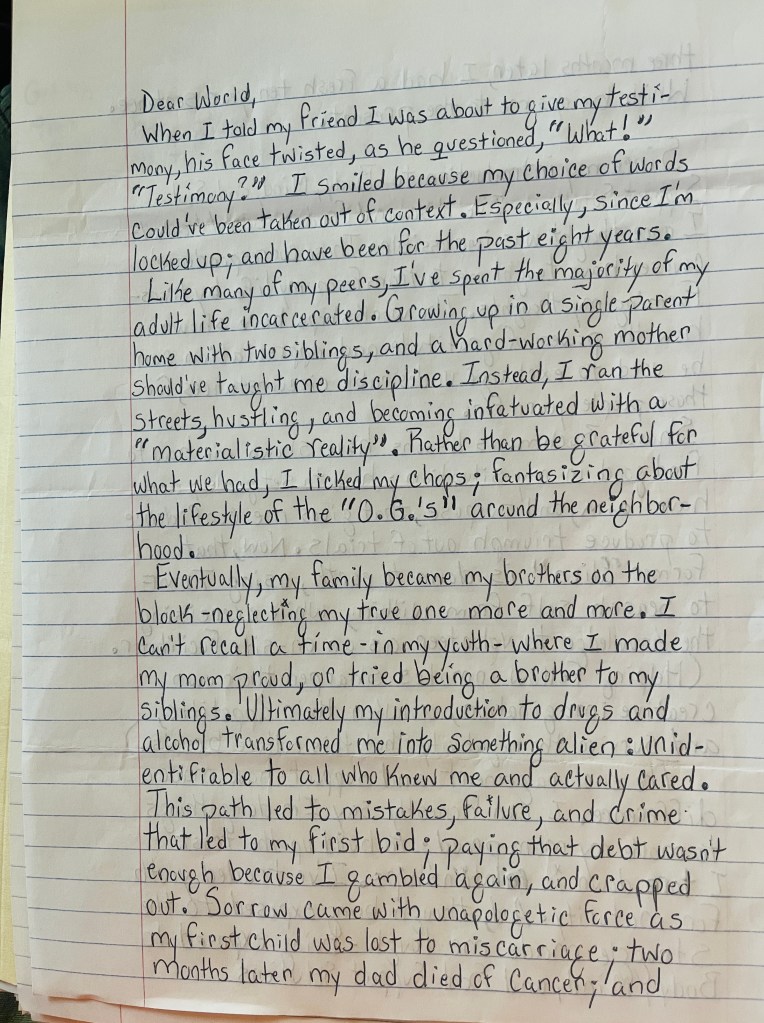 Dear World,
When I told my friend I was about to give my testi-
mony, his face twisted, as he questioned, "What!"
"Testimony?" I smiled because my choice of words
could've been taken out of context. Especially, since I'm
locked up; and have been for the past eight years.
Like many of my peers, I've spent the majority of my
adult life incarcerated. Growing up in a single-parent
home with two siblings, and a hard-working mother
should've taught me discipline. Instead, I ran the
streets, hustling, and becoming infatuated with a
"materialistic reality". Rather than be grateful for
what we had, I licked my chops; fantasizing about
the lifestyle of the "O.G.'s" around the neighbor-
hood.
Eventually, my family became my brothers on the
block-neglecting my true one more and more. I
can't recall a time-in my youth-where I made
my mom proud, or tried being a brother to my
siblings. Ultimately my introduction to drugs and
alcohol transformed me into something alien: unid-
entifiable to all who knew me and actually cared.
This path led to mistakes, failure, and crime
that led to my first bid; paying that debt wasn't
enough because I gambled again, and crapped
out. Sorrow came with unapologetic force as
my first child was lost to miscarriage; two
months later my dad died of Cancer; and